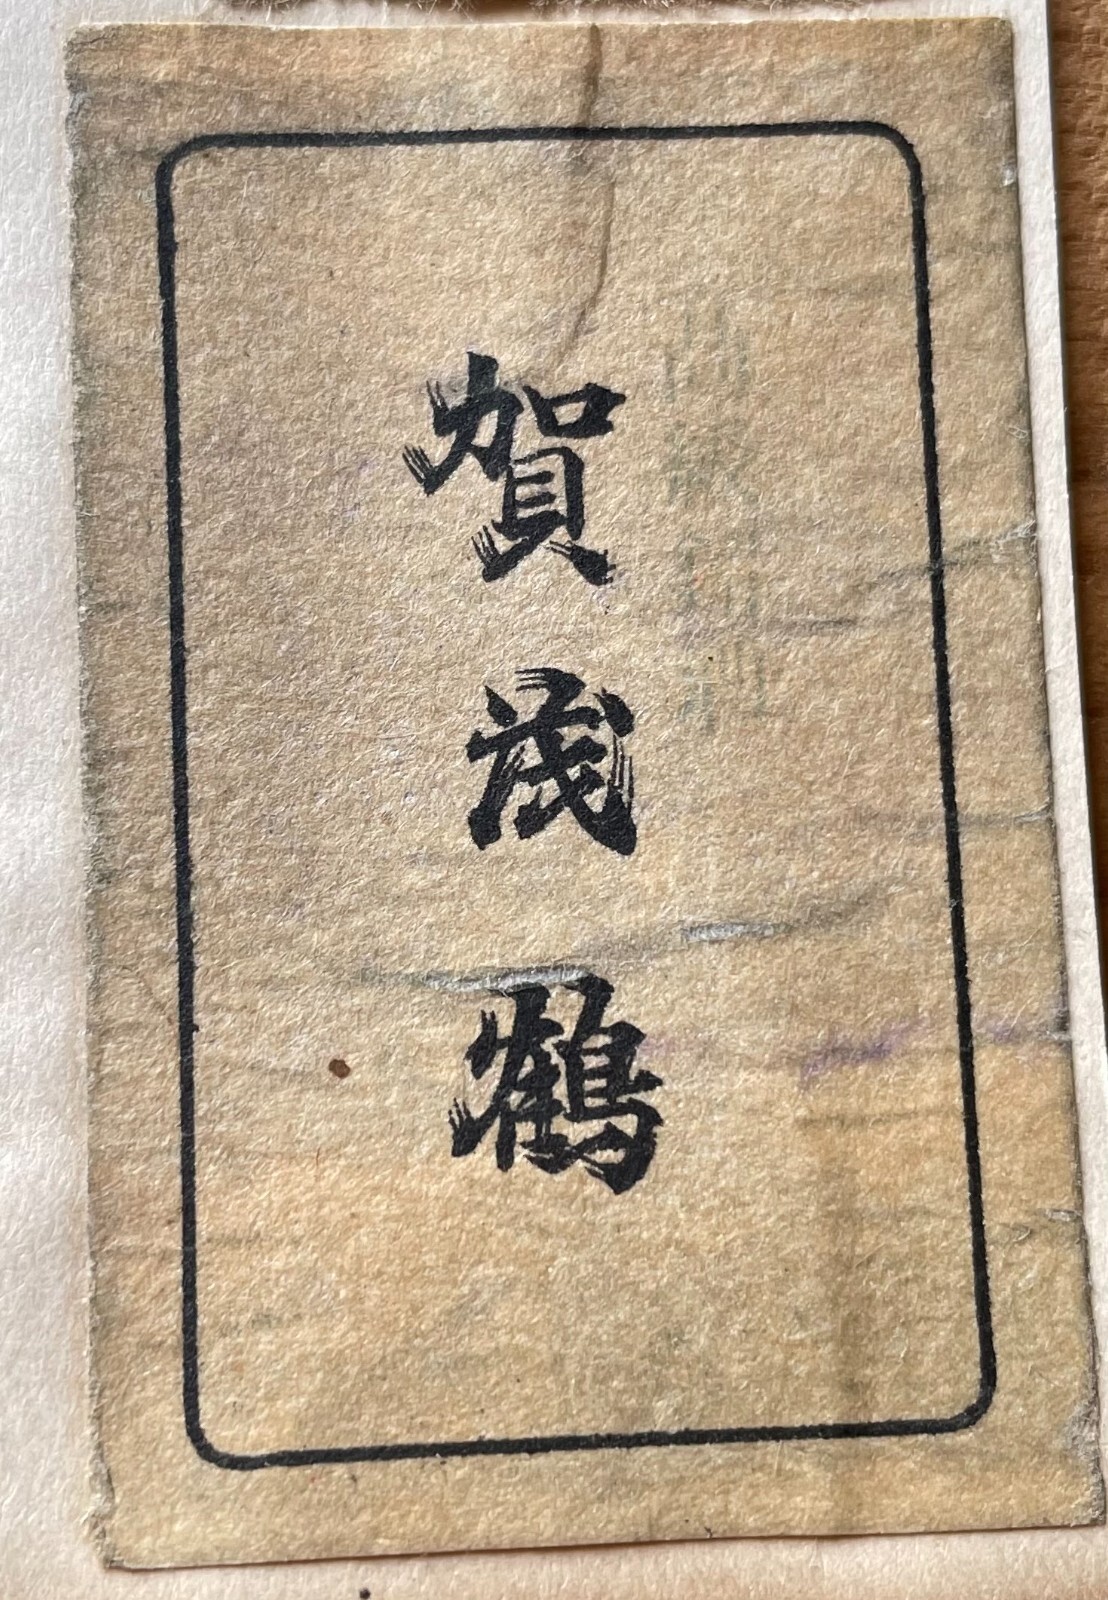 賀茂鶴